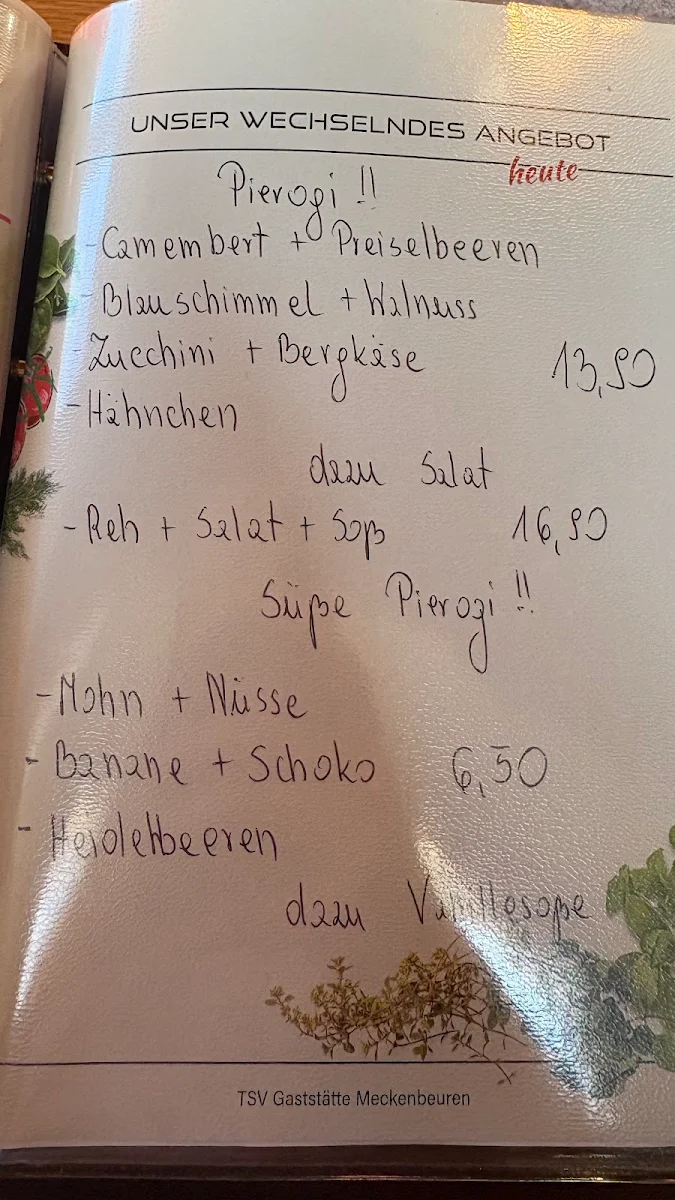 UNSER WECHSELNDES ANGEBOT
heute
Pierogi !!
- Camembert + Preiselbeeren
- Blauschimmel + Walnuss
- Zucchini + Bergkäse 13,90
- Hähnchen
dazu Salat
- Reh + Salat + Soß 16,90
Süße Pierogi !!
- Mohn + Nüsse
- Banane + Schoko 6,50
- Heidelbeeren
dazu Vanillesoße
TSV Gaststätte Meckenbeuren